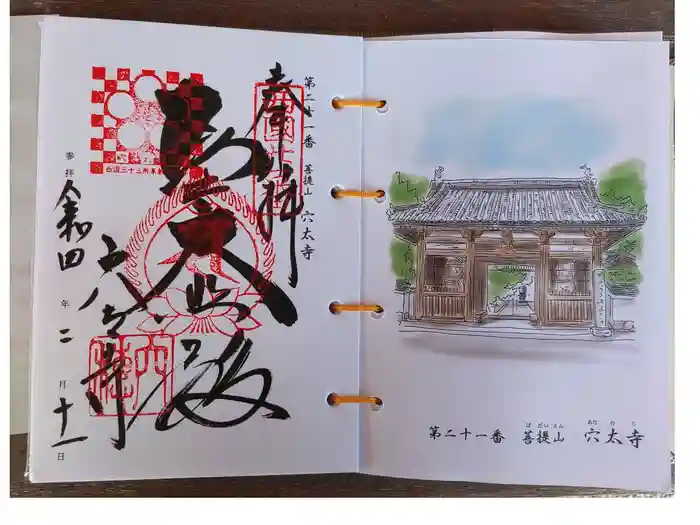 第二十一番 菩提山 穴太寺
奉拝
大悲殿
穴太寺
参拝 令和四年二月十一日
ぼだいさん あなおじ
第二十一番 菩提山 穴太寺